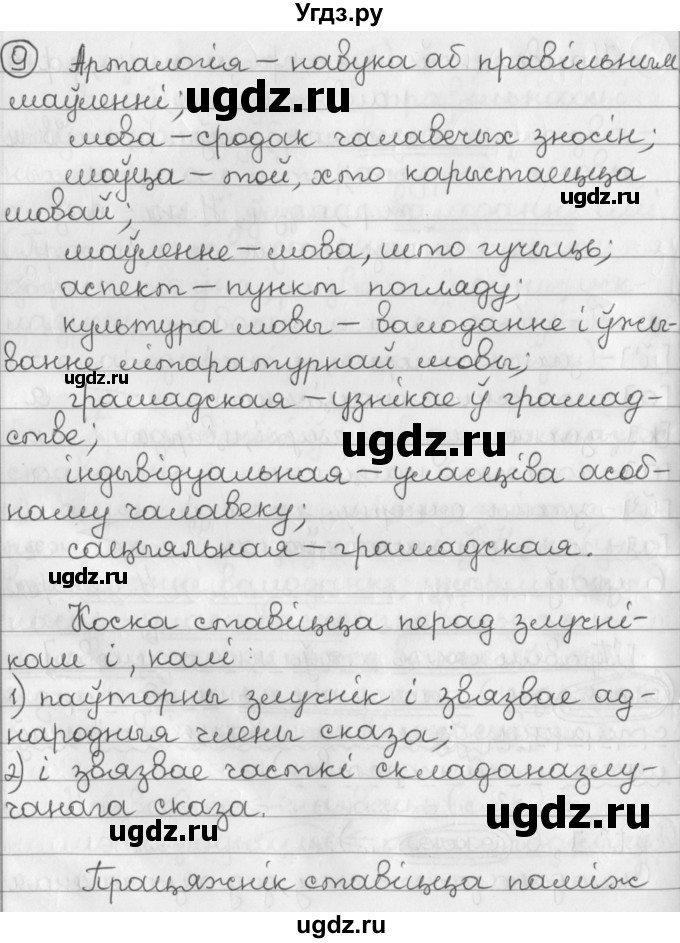 Угдз.ру
9 Арталогія – навука аб правільным
маўленні;
ugdz.ru
мова – сродак чалавечых зносін;
маўца – той, хто карыстаецца
ugdz.ru
мовай;
маўленне – мова, што гучыць;
аспект – пункт погляду;
культура мовы – валоданне і ўжы-
ванне літаратурнай мовы;
ugdz.ru
грамадская – узнікае ў грамад-
стве;
ugdz.ru
індывідуальная – уласціва асоб-
наму чалавеку;
сацыяльная – грамадская.
ugdz.ru
Коска ставіцца перад злучні-
кам і, калі:
1) паўторны злучнік і звязвае ад-
народныя члены сказа,
2) і звязвае часткі складаназлу-
ugdz.ru
чанага сказа.
ugdz.ru
Працяжнік ставіцца паміж
ugdz.ru